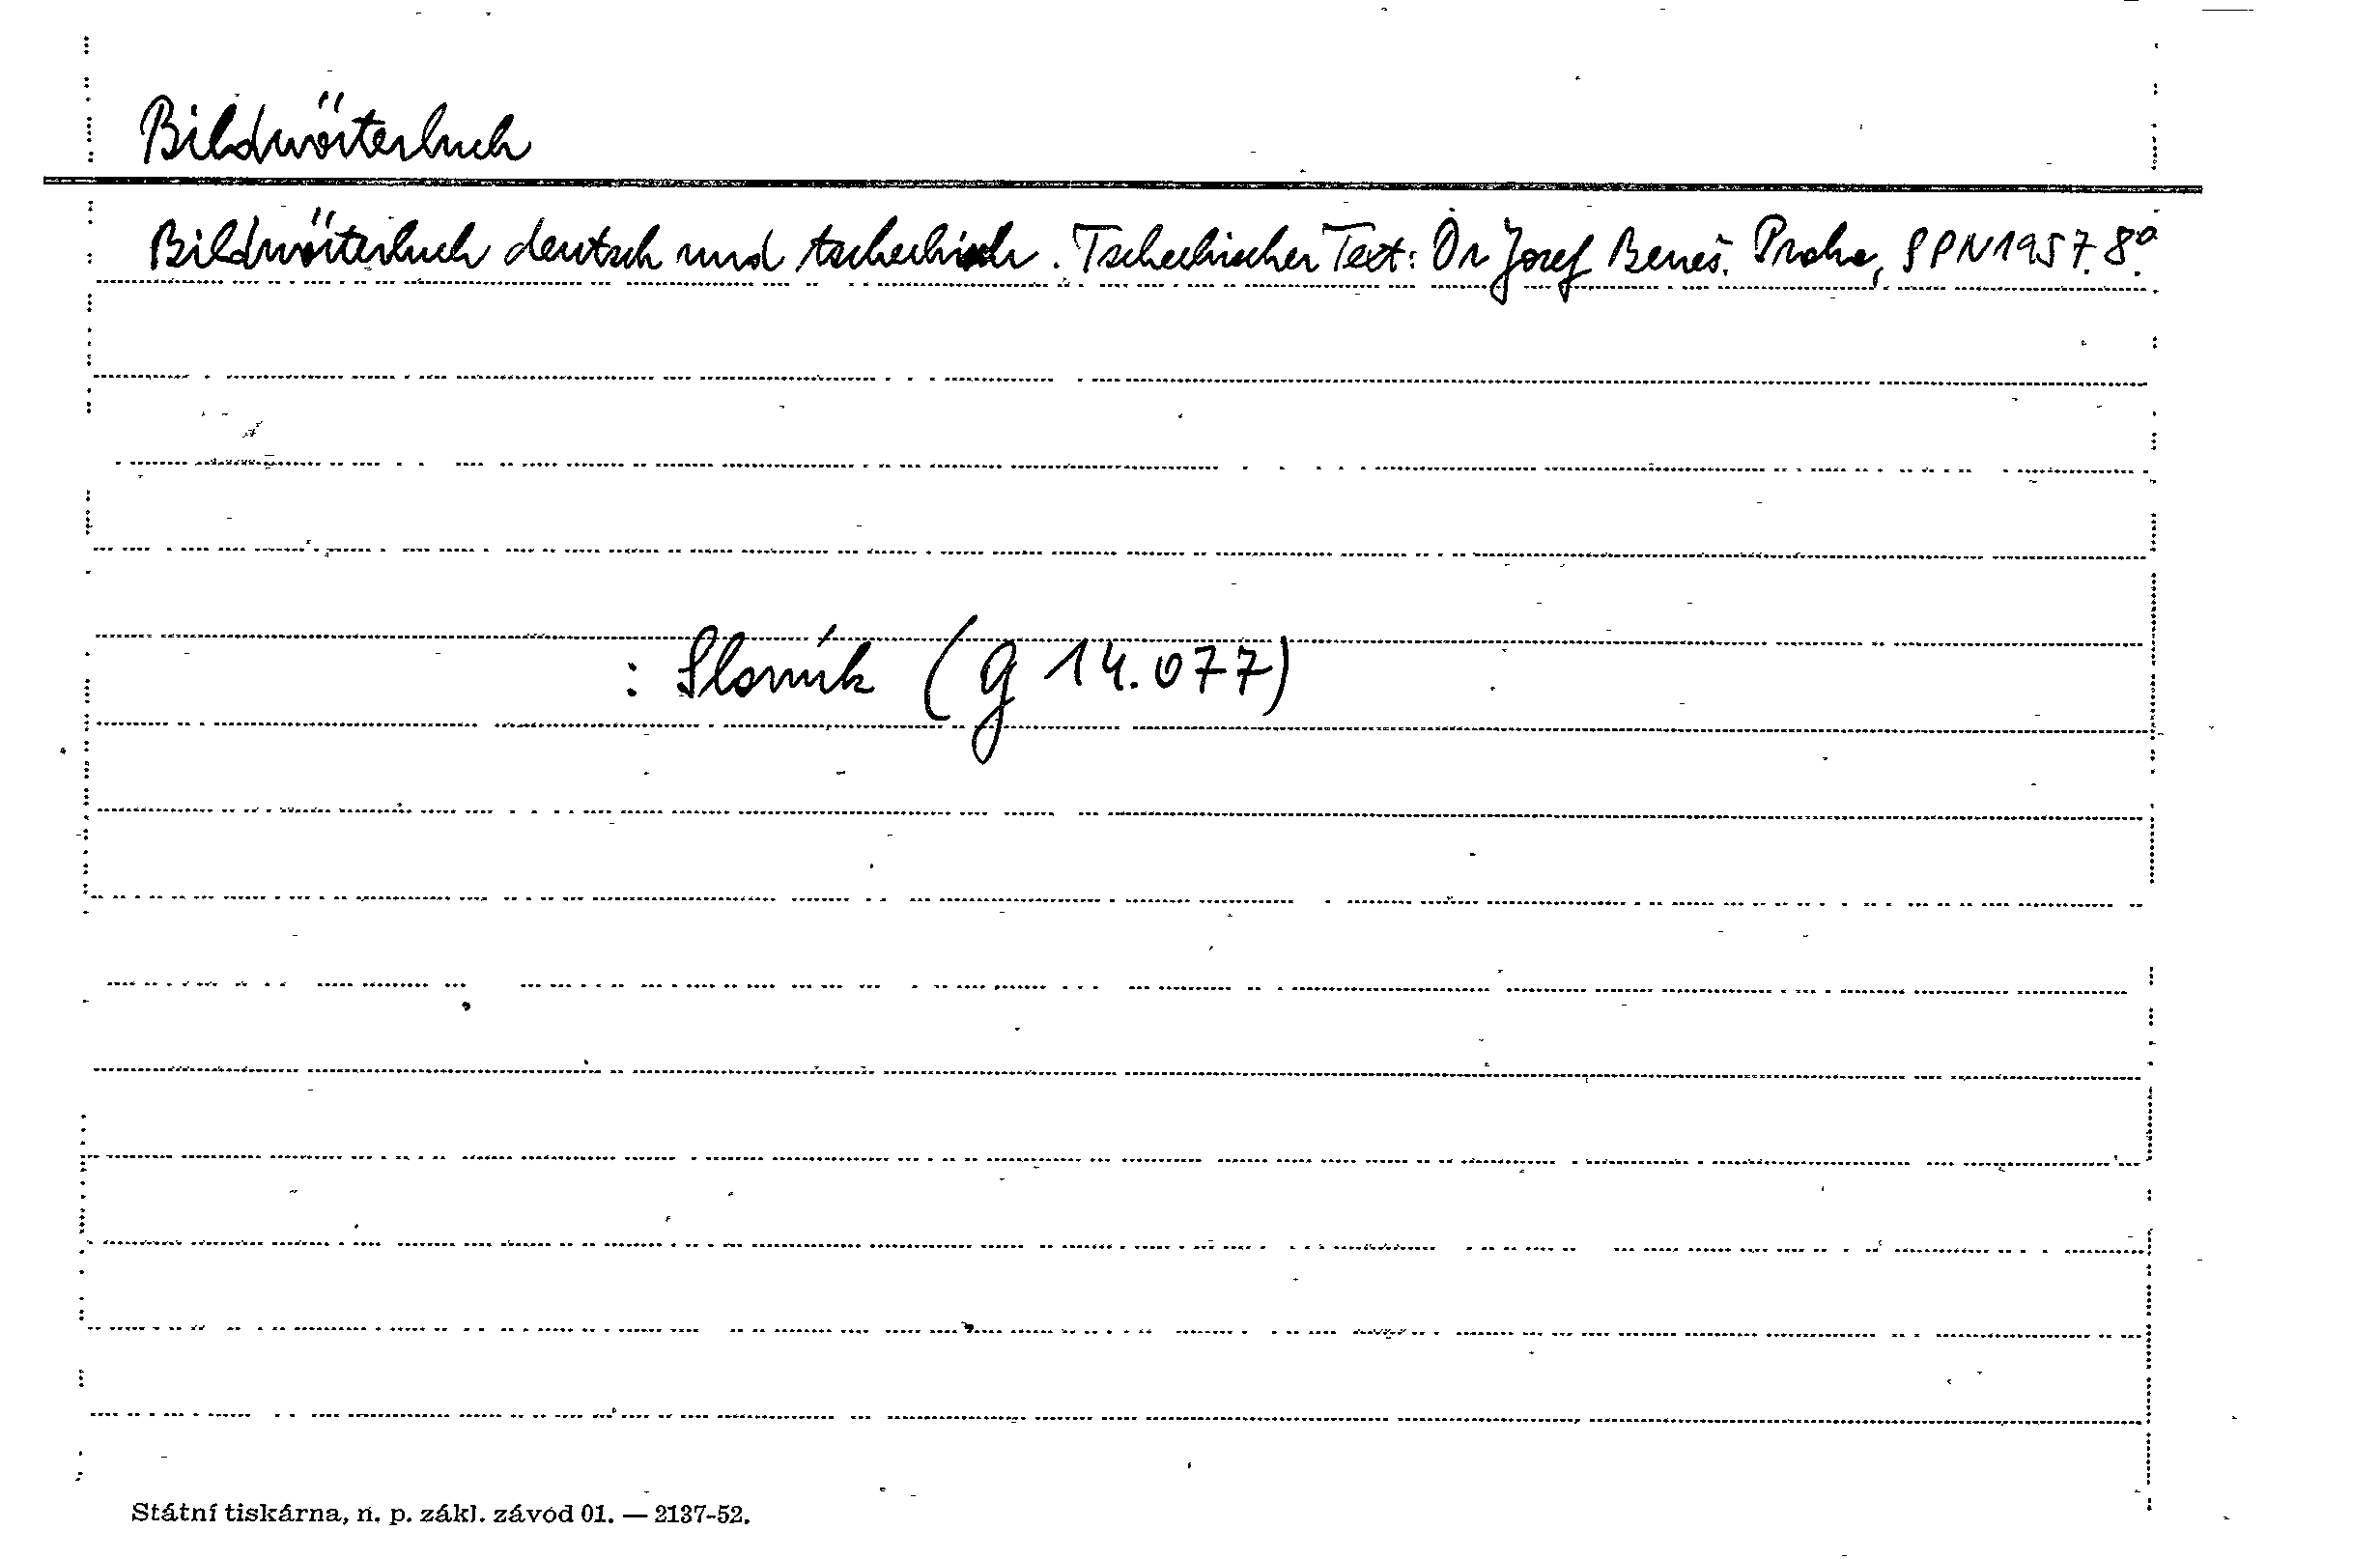 Bildwörterbuch
Bildwörterbuch deutsch und tschechisch. Tschechischer Text: Dr Josef Beneš. Praha, SPN 1957. 8°.
: Slovník (g 14.077)
Státní tiskárna, n. p. zákl. závod 01. — 2137-52.